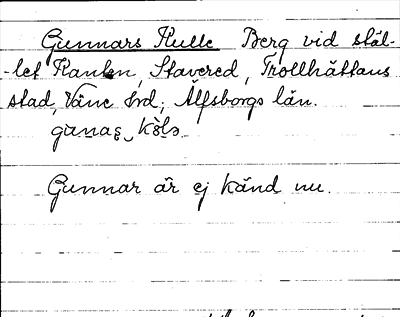 Gunnars Kulle Berg vid stäl-
-let Kanken, Stavered, Trollhättans
stad, Väne hrd; Älfsborgs län.
Gunnar är ej känd nu.